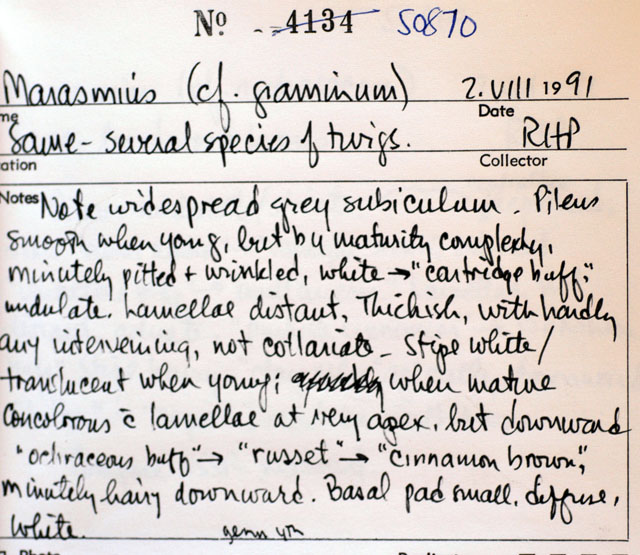 Nº 4134 50870
Marasmius (cf. graminum) 2.VIII 1991
me Date
Same - several species of twigs. RHP
ation Collector
Notes Note widespread grey subiculum. Pileus
smooth when young, but by maturity complexly,
minutely pitted + wrinkled, white → "cartridge buff",
undulate. Lamellae distant, thickish, with hardly
any intervening, not collariate - Stipe white/
translucent when young; when mature
concolorous c̄ lamellae at very apex, but downward
"ochraceous buff" → "russet" → "cinnamon brown",
minutely hairy downward. Basal pad small, diffuse,
white.